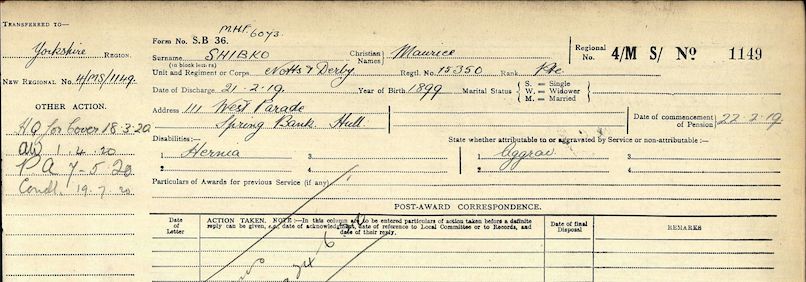 TRANSFERRED TO—
Yorkshire REGION.
NEW REGIONAL NO. 4/MS/1149.
OTHER ACTION.
HQ for Cover 18.3.20
1.4.20
P A 7-5-20
Condl. 19.7.20
M.H.P. 6073.
Form No. S.B 36.
Surname SHIBKO
(in block letters)
Christian Names Maurice
Regional No. 4/M S/ No 1149
Unit and Regiment or Corps. Notts & Derby Regtl. No. 15350 Rank Pte.
Date of Discharge 21-2-19. Year of Birth 1899 Marital Status S. = Single
W. = Widower
M. = Married
Address 111 West Parade
Spring Bank. Hull
Date of commencement of Pension 22-2-19
Disabilities:—
State whether attributable to or aggravated by Service or non-attributable:—
1 Hernia 3 1 Aggrav. 3
2 4 2 4
Particulars of Awards for previous Service (if any)
POST-AWARD CORRESPONDENCE.
Date of Letter
ACTION TAKEN. NOTE:—In this column are to be entered particulars of action taken before a definite
reply can be given, e.g., date of acknowledgment, date of reference to Local Committee or to Records, and
date of their reply.
Date of final Disposal
REMARKS